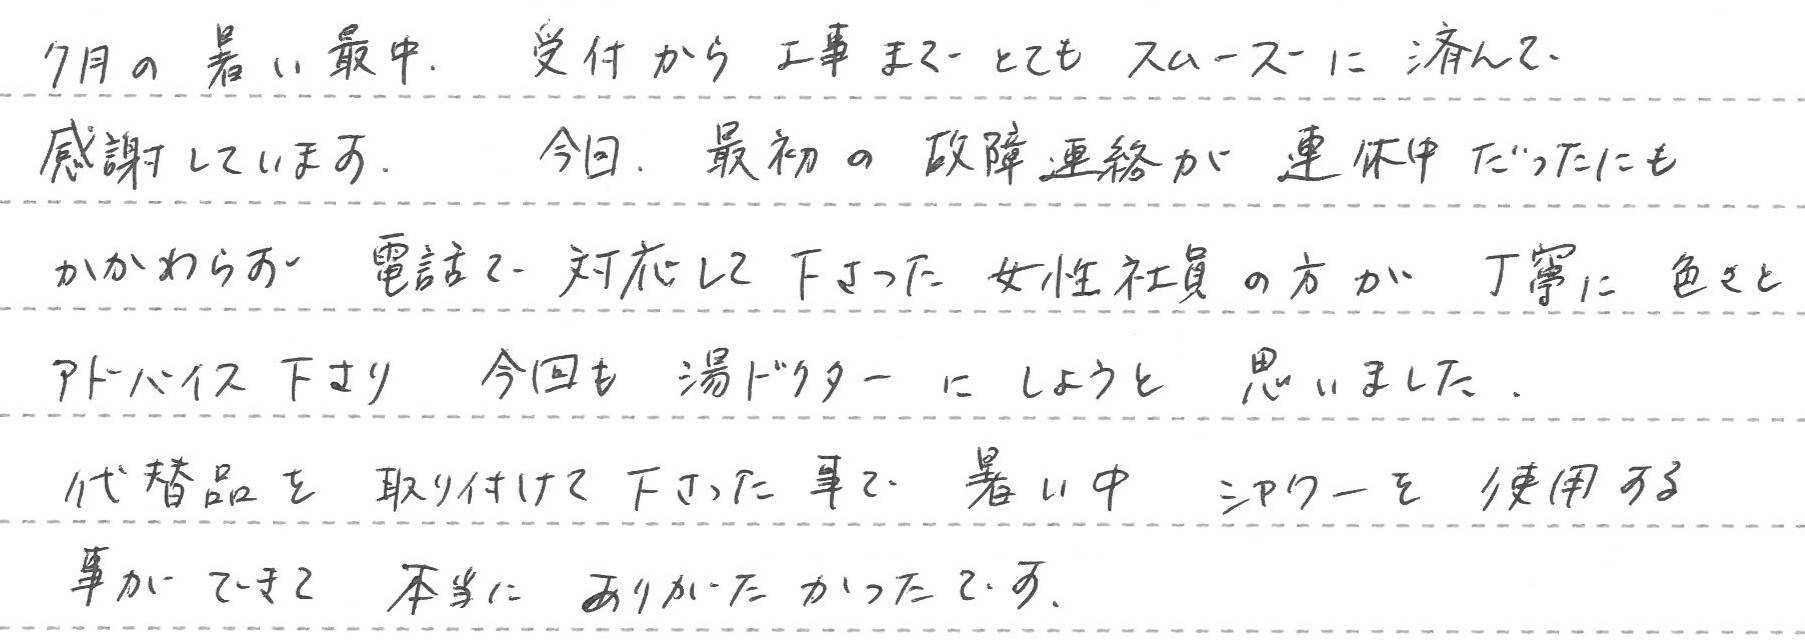 7月の暑い最中. 受付から工事まで とても スムーズに 済んで.
感謝しています. 今回. 最初の故障連絡が 連休中だったにも
かかわらず 電話で 対応して下さった 女性社員の方が 丁寧に 色々と
アドバイス下さり 今回も 湯ドクターに しようと 思いました.
代替品を 取り付けて下さった事で 暑い中 シャワーを 使用する
事ができて 本当に ありがたかったです.